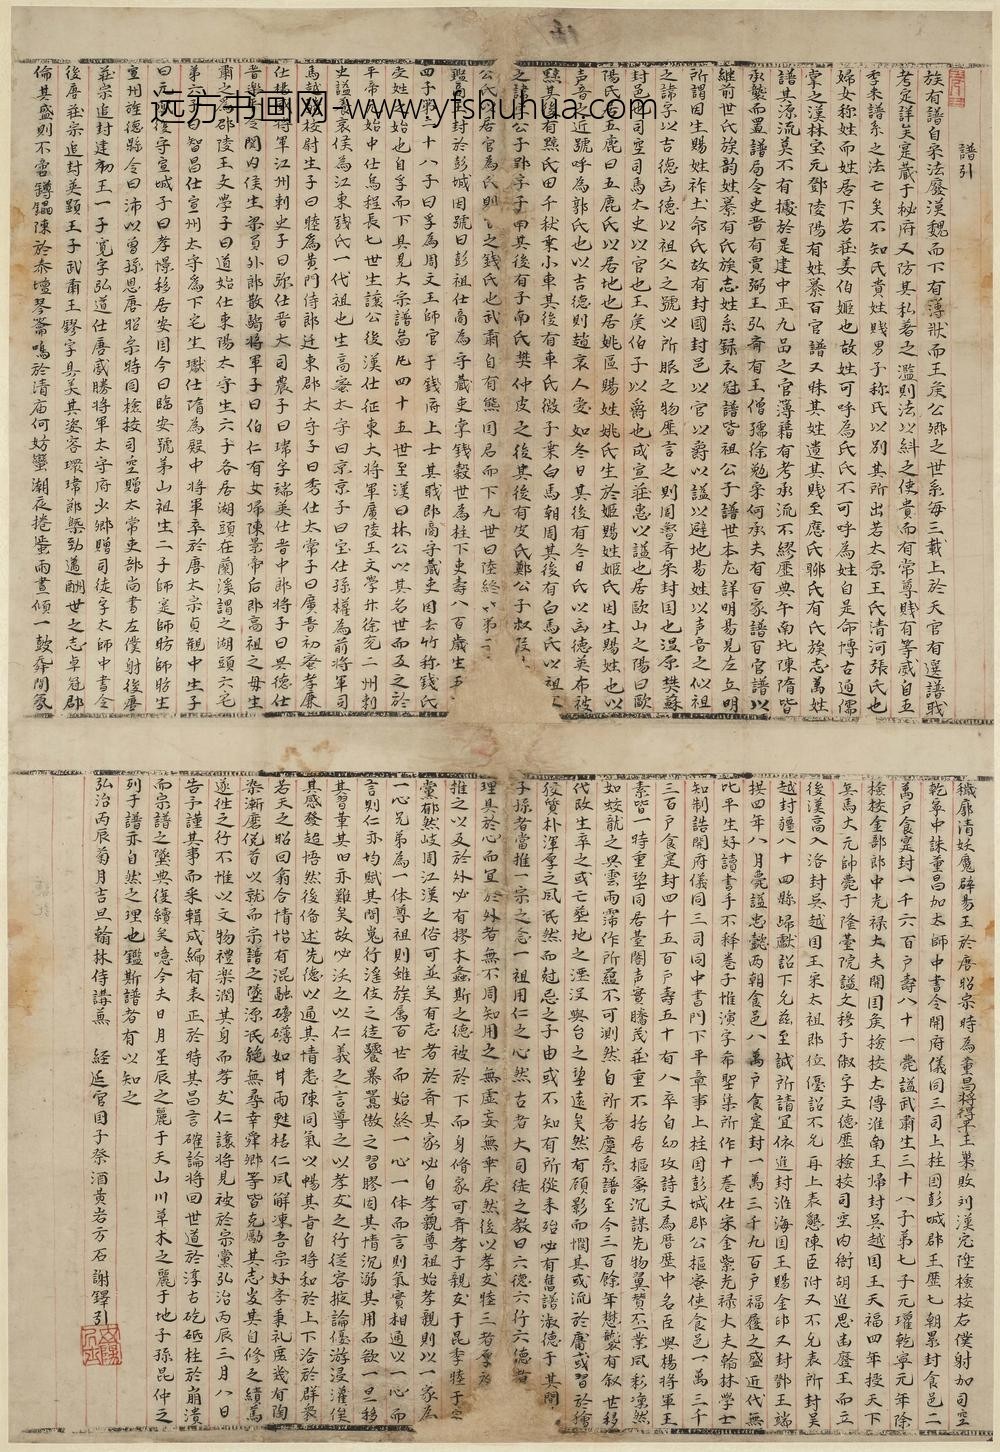 譜引
族有譜自宗法廢漢魏而下有簿狀而王矦公鄉之世系每三載上於天官有選譜戝
者定詳矣寔蔵于秘府又防其私著之濫則法以紏之使貴而有常尊賤有等威自五
季来譜系之法亡矣不知氏貴姓賤男子称氏以別其所出若太原王氏清河張氏也
婦女称姓而姓居下若莊姜伯姬也故姓可呼為氏氏不可呼為姓自是命博古通儒
掌之漢林宝元鄧陵陽有姓纂百官譜又昧其姓遺其賤至應氏聊氏有氏族志萬姓
譜其源流莫不有據於是建中正九品之官簿籍有考承流不繆歷典午南北陳隋皆
承襲而置譜局令史晋有賈弼王弘斉有王僧孺徐勉宋何承夫有百家譜百官譜以
継前世氏族韵姓纂有氏族志姓系録衣冠譜皆祖公子譜世本尤詳明昜見左丘明
所謂因生賜姓祚土命氏故有封國封邑以官以爵以謚以避地昜姓以声音之似祖
之諱字以吉德凶德以祖父之號以所服之物歴言之則周魯斉宋封国也温原樊蘇
封邑也司空司馬太史以官也王矦伯子以爵也成宣莊惠以謚也居歐山之陽曰歐
陽氏五鹿曰五鹿氏以居地也居姚區賜姓姚氏生於姬賜姓姬氏因生賜姓也以
声音之近號呼為郭氏也以吉德則趙衰人愛如冬日其後有冬日氏以凶德英布被
黥其後有黥氏田千秋乗小車其後有車氏微子乗白馬朝周其後有白馬氏以
之諱公子郢字子南其後有子南氏樊仲皮之後其後有皮氏鄭公子叔
公氏居官為氏則之錢氏也武肅自有熊国君而下九世曰陸終
籛高封於彭城因號曰彭祖仕啇為守蔵吏掌錢糓世為柱下吏壽八百歲生五
四子弟二十八子曰孚為周文王師官于錢府上士其戝郎啇守蔵吏因去竹称錢氏
受姓之始也自孚而下具見大宗譜昝凡四十五世至漢曰林公以其名世而及之於
平帝元始中仕烏程長七世生讓公後漢仕征東大将軍廣陵王文學廾徐兗二州刺
史謚哀矦為江東錢氏一代祖也生高密太守曰京京子曰宝仕孫權為前将軍司
馬越騎校尉生子曰睦為黄門侍郎迁東郡太守子曰秀仕太常子曰廣晋初舉孝廉
仕揚威将軍江州刺史子曰弥仕晋大司農子曰璓字端美仕晋中郎将子曰昊德仕
晋樂平令関内矦生梁員外郎散騎将軍子曰伯仁有女帰陳景帝后郎高祖之毋生
肅之為郡陵王文學子曰道始仕東陽太守生六子各居湖頭在蘭溪謂之湖頭六宅
弟六子曰智昌仕宣州太守為下宅生瓛仕隋為殿中将軍卒於唐太宗貞觀中生子
曰元脩後守宣城子曰孝憬移居安国今曰臨安號茅山祖生二子師寔師昉師昉生
宣州旌德縣令曰沛以曽孫恩唐昭宗時同檢校司空贈太常吏部尚書左僕射後唐
莊宗追封建初王一子寛字弘道仕唐威勝将軍太守府少卿贈司徒字太師中書令
後唐莊宗追封英顕王子武肅王鏐字具美其姿容環瑋郎槩勁邁酬世之志卓冠郡
倫其盛則不啻鐏鎾陳於泰壇琴髙鳴於清庙何妨蠻潮夜捲蜑雨晝傾一鼓舜間氛
穢靡清妖魔辟昜王於唐昭宗時為董昌将得平土巣敗刘漢宏陞検校右僕射加司空
乾寧中誅董昌加太師中書令開府儀同三司上柱国彭城郡王歷七朝累封食邑二
萬戸食寔封一千六百戸壽八十一薨謚武肅生三十八子弟七子元瓘乾寧元年除
檢挍金部郎中光禄大夫開国矦檢挍太傳淮南王帰封呉越国王天福四年授天下
兵馬大元帥薨于隆臺院謚文穆子俶字文德歷檢校司空内衙胡進思凾歷王而立
後漢高入洛封吴越国王宋太祖郎位優詔不名再上表懇陳臣附又不允表所封吴
越封疆八十四縣歸獻詔下允兹至誠所請宜依進封淮海国王賜金印又封鄧王端
拱四年八月薨謚忠懿两朝食邑八萬戸食寔封一萬三千九百戸福履之盛近代無
比平生好讀書手不释卷子惟演字希聖集所作十卷仕宋金紫光禄大夫翰林學士
知制誥開府儀同三司同中書門下平章事上柱国彭城郡公樞宻使食邑一萬三千
三百戸食寔封四千五百戸壽五十有八卒自幼攻詩文為曆歷中名臣與楊将軍王
素皆一時重望同居臺閣声實騰茂並重不括居樞宻沉謀先物翼賛丕業風彩凜然
如蛟龍之兴雲雨霈作所蘊不可測然自所著慶系譜至今三百餘年懋襲有叙世移
代改生卒之或亡塟地之湮没輿台之望遠矣然有顾影而憫其或流於庸或習於種
狡質朴渾厚之風氓然而冠忌之子由或不知有所從来殆必有舊譜淑德于其間
子孫者當推一宗之念一祖用仁之心然古者大司徒之教曰六德六行六德者
理具於心而宜於外者無不周知用之無虛妄無乖戻然後以孝友睦三者厚於
推之以及於外必有摎木螽斯之德被於下而身脩家可斉孝于親友于昆季睦于宗
黨郁然岐周江漢之俗可並矣有志者於斉其家必自孝親尊祖始孝親則以一家為
一心兄弟為一体尊祖則雖矦属百世而始終一心一体而言則氣實相通以一心而
言則仁亦均賦其間嵬行淫伎之徒饕暴嚣傲之習膠固其情沉溺其用而欲一旦移
其習革其旧亦難矣故必沃之以仁義之言導之以孝友之行從容掖論優游浸灌俟
其感發超悟然後俻述先德以通其情悉陳同氣以暢其旨自将和於上下洽於群衆
若天之昭回翕合情怡有混融磅礡如甘雨甦枯仁风解凍吾宗好孝秉礼庶幾有陶
染漸磨俛首以就而宗譜之墜源泯絶無尋幸舜卿等皆克勵其志发其自修之績為
遂徃之行不惟以文物禮樂潤其身而孝友仁讓将見被於宗黨弘治丙辰三月八日
告予謹其事而采輯成編有表正於時其昌言確論将回世道於淳古砣砥柱於崩潰
而宗譜之墜典後續矣噫今夫日月星辰之麗于天山川草木之麗于地子孫昆仲之
列于譜亦自然之理也鑑斯譜者有以知之
弘治丙辰菊月吉旦翰林侍講蒹　經近官国子祭酒黄岩方石謝鐸引
远方书画网-www.yfshuhua.com